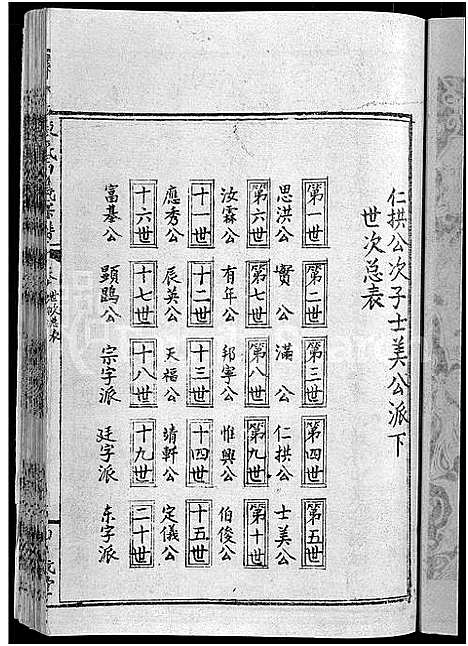 仁拱公次子士美公派下
世次总表
第一世 第二世 第三世 第四世 第五世
思洪公 實公 滿公 仁拱公 士美公
第六世 第七世 第八世 第九世 第十世
汝霖公 有年公 邦宇公 惟興公 伯俊公
十一世 十二世 十三世 十四世 十五世
應秀公 辰英公 天福公 靖軒公 定儀公
十六世 十七世 十八世 十九世 二十世
富基公 顕鵾公 宗字派 廷字派 东字派